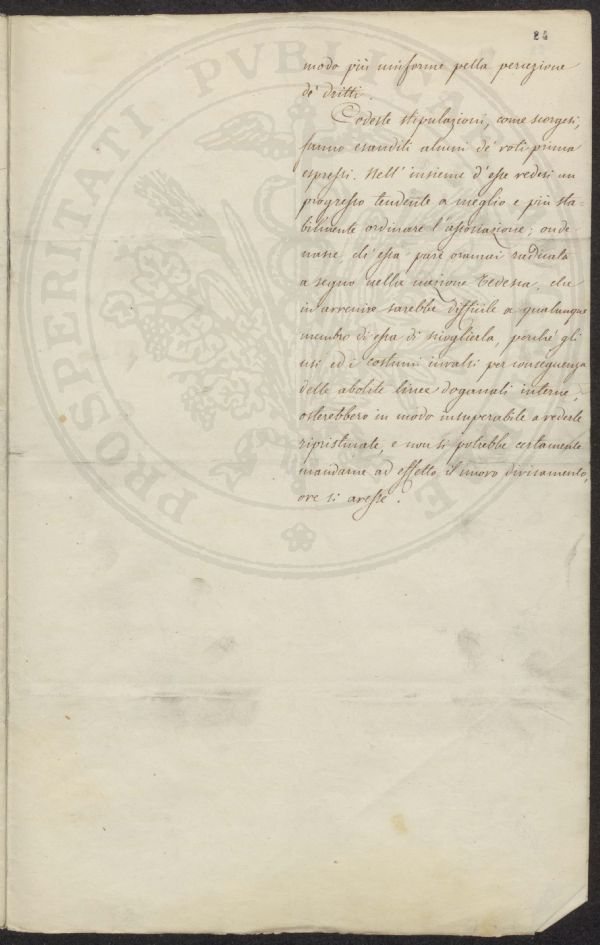 24
modo più uniforme pella percezione
de' dritti.
Codeste stipulazioni, come scorgesi,
fanno esauditi alcuni de' voti prima
espressi. Nell' insieme d'esse vedesi un
progresso tendente a meglio e più sta=
bilmente ordinare l'associazione; onde
di essa pare oramai radicata
a segno nella nazione Tedesca, che
in avvenire sarebbe difficile a qualunque
membro di essa di scioglierla, perchè gli
usi ed i costumi invalsi per conseguenza
delle abolite linee doganali interne,
osterebbero in modo insuperabile a vederle
ripristinate, e non si potrebbe certamente
mandarne ad effetto il nuovo divisamento,
ove si avesse.
PROSPERITATI PVBLICAE